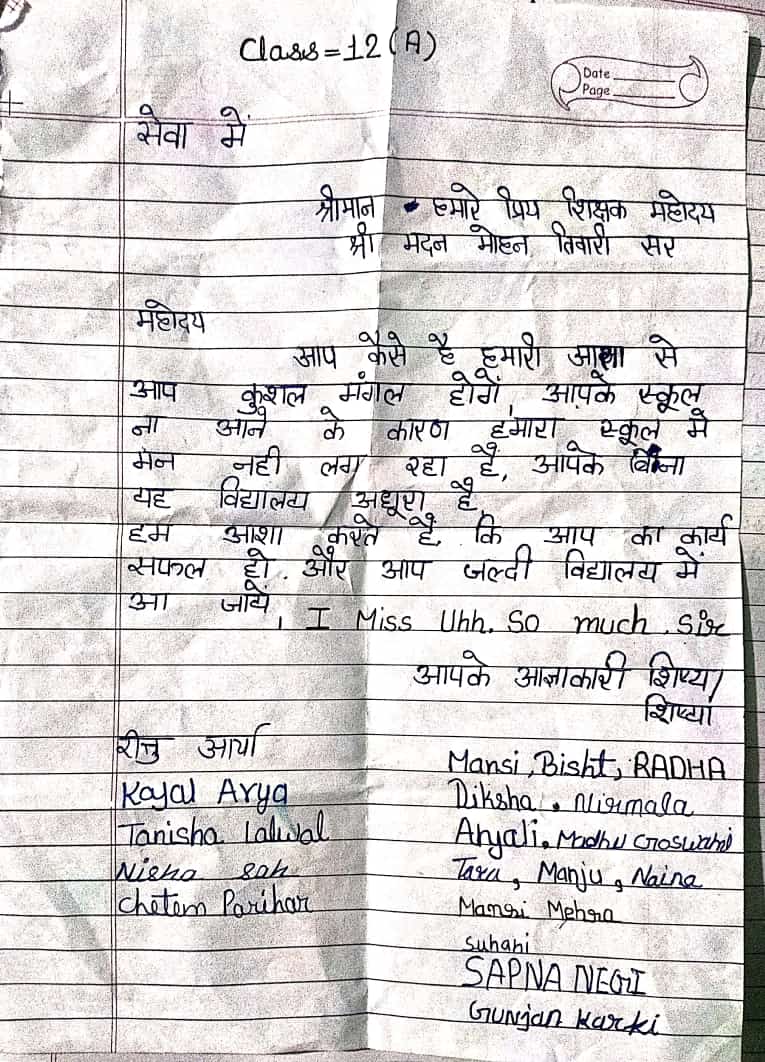 Class = 12 (A)
Date
Page
सेवा में
श्रीमान हमारे प्रिय शिक्षक महोदय
श्री मदन मोहन तिवारी सर
महोदय
आप कैसे है हमारी आशा से
आप कुशल मंगल होगें, आपके स्कूल
ना आने के कारण हमारा स्कूल में
मन नही लग रहा हैं, आपके बिना
यह विद्यालय अधूरा है,
हम आशा करते हैं कि आप का कार्य
सफल हो. और आप जल्दी विद्यालय में
आ जाये, I Miss Uhh. So much. Sir
आपके आज्ञाकारी शिष्य/
शिष्या
रीतु आर्या
Kajal Arya
Tanisha Lalwal
Nisha sah
Chetem Parihar
Mansi, Bisht, RADHA
Diksha. Nirmala
Anjali. Madhu Goswami
Tara, Manju, Naina
Mansi Mehra
suhani
SAPNA NEGI
Gunjan Karki